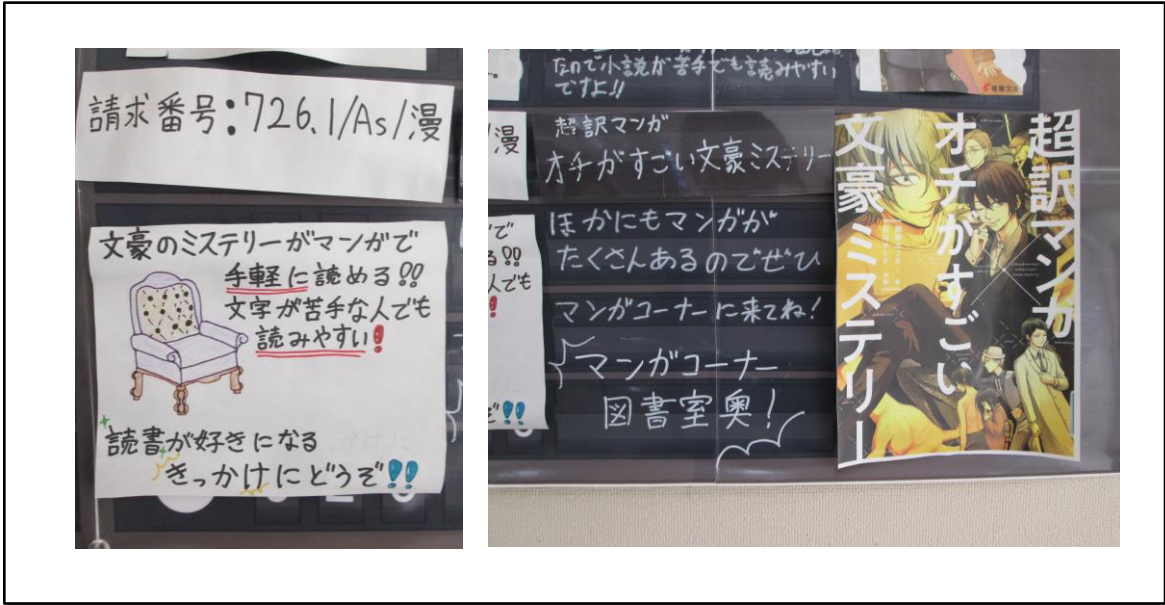 請求番号:726.1/As/漫
文豪のミステリーがマンガで
手軽に読める!!
文字が苦手な人でも
読みやすい!
読書が好きになる
きっかけにどうぞ!!
なので小説が苦手でも読みやすい
ですよ!!
漫
超訳マンガ
オチがすごい文豪ミステリー
ほかにもマンガが
たくさんあるのでぜひ
マンガコーナーに来てね!
マンガコーナー
図書室奥!
電撃文庫
超訳マンガ
オチがすごい
文豪ミステリー